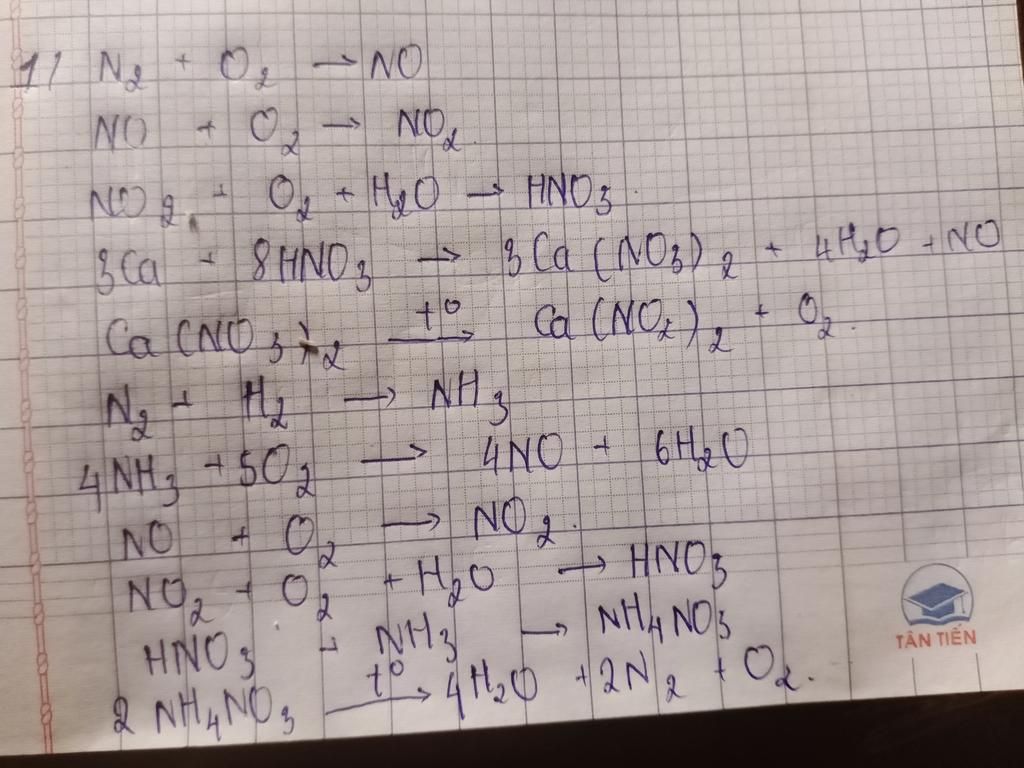 1) N₂ + O₂ → NO
NO + O₂ → NO₂.
NO₂ + O₂ + H₂O → HNO₃.
3Ca + 8HNO₃ → 3Ca(NO₃)₂ + 4H₂O + NO
Ca(NO₃)₂ –t°→ Ca(NO₂)₂ + O₂.
N₂ + H₂ → NH₃
4NH₃ + 5O₂ → 4NO + 6H₂O
NO + O₂ → NO₂.
NO₂ + O₂ + H₂O → HNO₃
HNO₃ + NH₃ → NH₄NO₃
2 NH₄NO₃ –t°→ 4H₂O + 2N₂ + O₂.
TÂN TIẾN